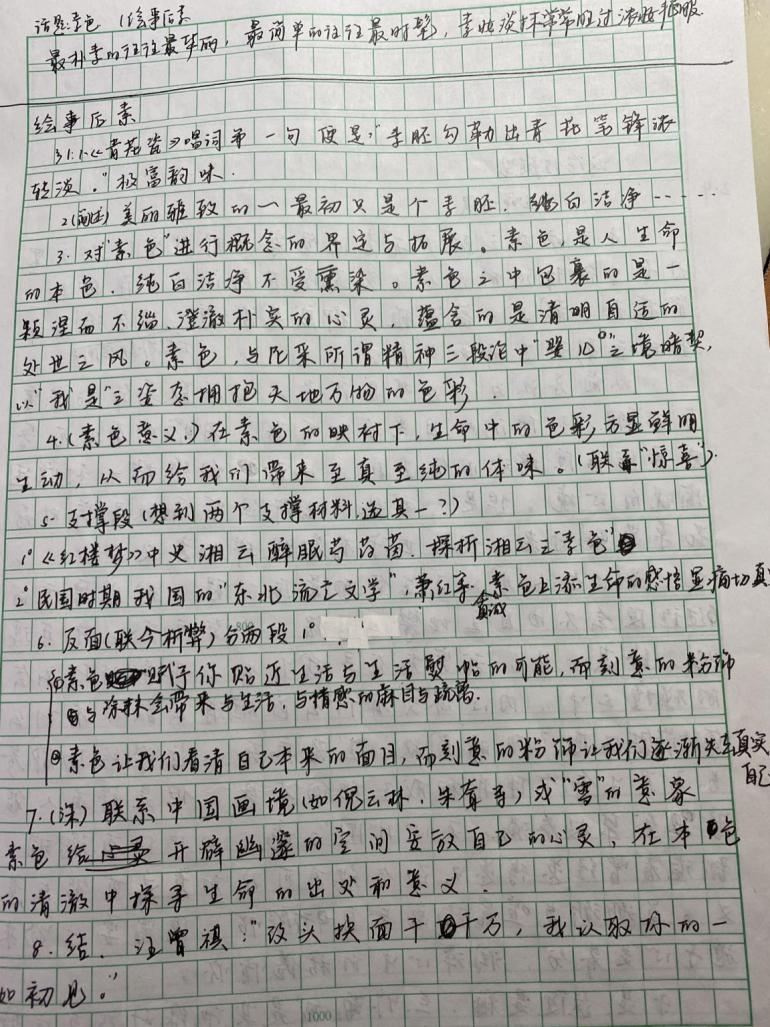 话题:素色 (绘事后素
最朴素的往往最华丽，最简单的往往最时髦，素妆淡抹常常胜过浓妆艳服
绘事后素
1.《青花瓷》唱词第一句便是:“素胚勾勒出青花笔锋浓
转淡。”极富韵味.
2(阐述)美丽雅致的一最初只是个素胚.纯白洁净……
3.对“素色”进行概念的界定与拓展。素色,是人生命
的本色.纯白洁净不受熏染。素色之中包裹的是一
颗涅而不缁.澄澈朴实的心灵,蕴含的是清明自适的
处世之风。素色,与尼采所谓精神三段论中“婴儿”之境暗契,
以“我是”之姿态拥抱天地万物的色彩.
4.(素色意义.)在素色的映衬下,生命中的色彩方显鲜明
生动,从而给我们带来至真至纯的体味。(联系“惊喜”).
5.支撑段(想到两个支撑材料,选其一?)
1°《红楼梦》中史湘云醉眠芍药茵.探析湘云之“素色”
2°民国时期我国的“东北流亡文学”,萧红等,素色上添生命的感悟显痛切真
6.反面(联今析弊)分两段1°.
①素色赋予你贴近生活与生活熨帖的可能,而刻意的粉饰
与涂抹会带来与生活.与情感的麻目与疏离.
②素色让我们看清自己本来的面目,而刻意的粉饰让我们逐渐失去真实
自己
7.(深)联系中国画境(如倪云林.朱耷等)或“雪”的意象
素色给开辟幽邃的空间安放自己的心灵,在本色
的清澈中探寻生命的出处和意义.
8.结.汪曾祺:“改头换面千千万,我认取你的一
如初见。”
1000